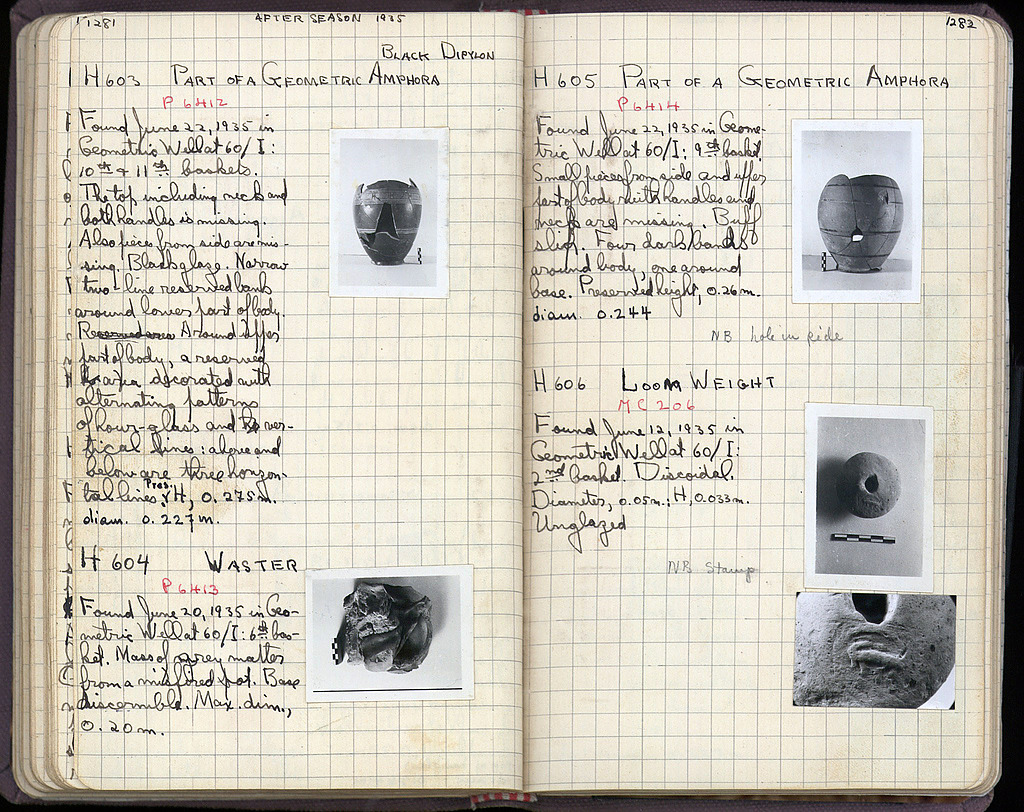 1281
AFTER SEASON 1935
BLACK DIPYLON
H 603 PART OF A GEOMETRIC AMPHORA
P 6412
Found June 22, 1935 in
Geometric Well at 60/I:
10th + 11th baskets.
The top including neck and
both handles is missing.
Also pieces from side are mis-
sing. Black glaze. Narrow
two-line reserved bank
around lower part of body.
Around upper
part of body, a reserved
area decorated with
alternating patterns
of hour-glass and ver-
tical lines: above and
below are three horizon-
tal lines. Pres. H, 0.275m.
diam. 0.227m.
H 604 WASTER
P 6413
Found June 20, 1935 in Geo-
metric Well at 60/I: 6th bas-
ket. Mass of grey matter
from a misfired pot. Base
discernible. Max. dim.,
0.20m.
1282
H 605 PART OF A GEOMETRIC AMPHORA
P 6414
Found June 22, 1935 in Geome-
tric Well at 60/I: 9th basket.
Small pieces from side and upper
part of body with handles and
neck are missing. Buff
slip. Four dark bands
around body, one around
base. Preserved height, 0.26m.
diam. 0.244
NB hole in side
H 606 LOOM WEIGHT
MC 206
Found June 12, 1935 in
Geometric Well at 60/I:
2nd basket. Discoidal.
Diameter, 0.05m.; H, 0.033m.
Unglazed
NB Stamp